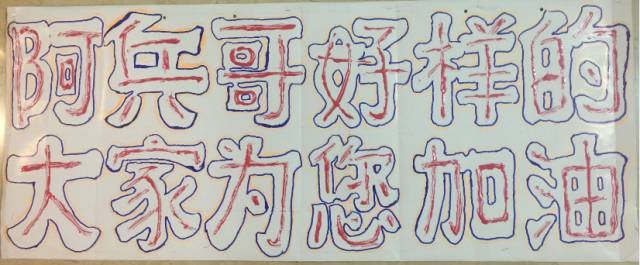 阿兵哥好样的
大家为您加油